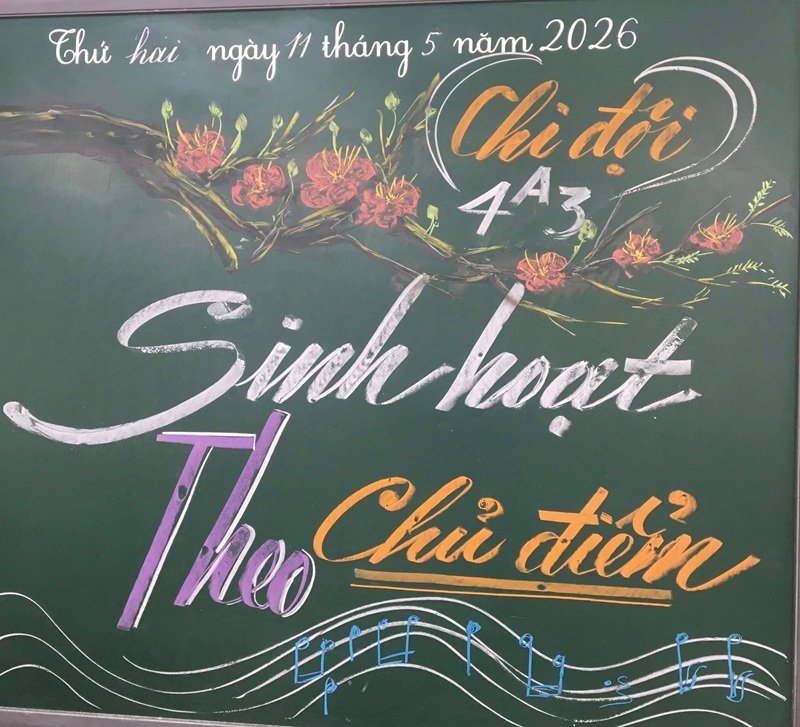 Thứ hai ngày 11 tháng 5 năm 2026
Chi đội
4A3
Sinh hoạt
Theo
Chủ điểm